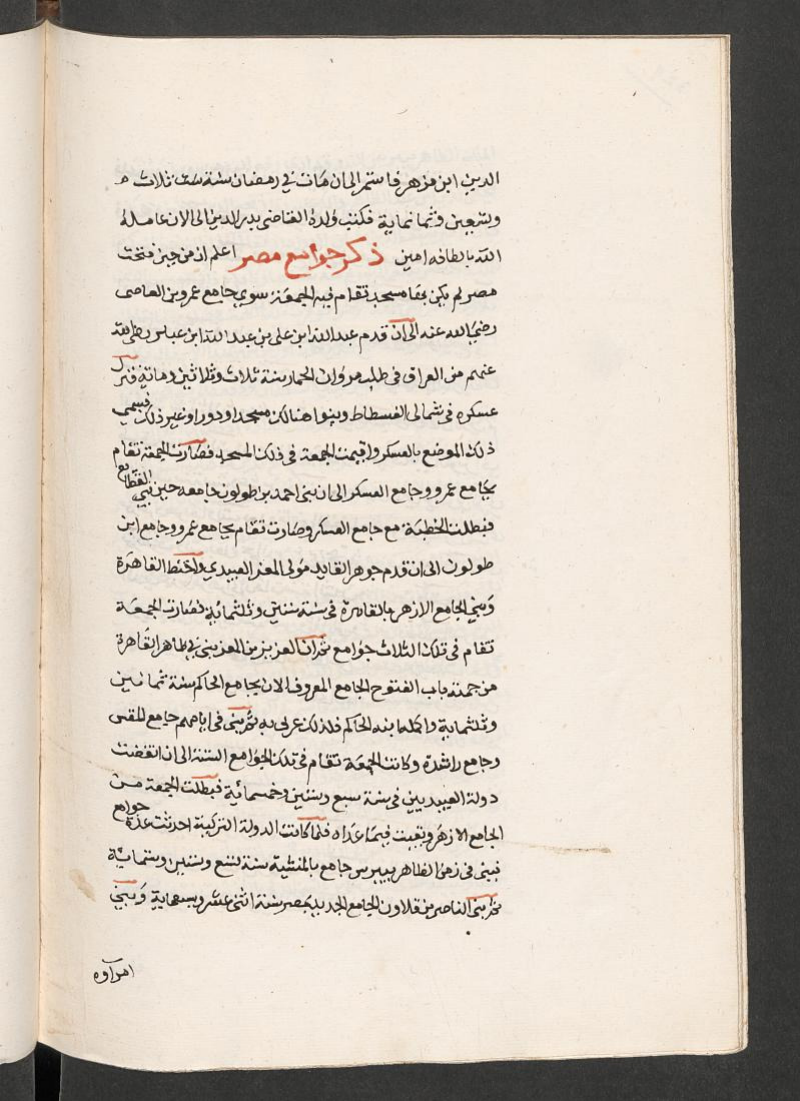 الدين ابن مزهر فاستمر الى ان مات في رمضان سنة ست ثلاث
وتسعين وثمانماية فكتب ولده القاضى بدر الدين الى الان عامله
الله بالطافه امين ذكر جوامع مصر اعلم ان من حين فتحت
مصر لم يكن بها مسجد تقام فيه الجمعة سوى جامع عمرو بن العاصى
رضى الله عنه الى ان قدم عبد الله ابن على بن عبد الله ابن عباس رضى الله
عنهم من العراق فى طلب مروان الحمار سنة ثلاث وثلاثين وماية فنزل
عسكره فى شمالى الفسطاط وبنوا هنالك مسجدا ودورا وغير ذلك فسمى
ذلك الموضع بالعسكر واقيمت الجمعة فى ذلك المسجد فصارت الجمعة تقام
بجامع عمرو وجامع العسكر الى ان بنى احمد بن طولون جامعه حين بنى القطايع
فبطلت الخطبة مع جامع العسكر وصارت تقام بجامع عمرو وجامع ابن
طولون الى ان قدم جوهر القايد مولى المعز العبيدي واختط القاهرة
وبنى الجامع الازهر بالقاهرة فى سنة ستين وثلثمائة فصارت الجمعة
تقام فى تلك الثلاث جوامع ثم ان العزيز بن المعز بنى فى ظاهر القاهرة
من جهة باب الفتوح الجامع المعروف الان بجامع الحاكم سنة ثمانين
وثلثماية واكملها بنه الحاكم فلذلك عرف به ثم بنى فى ايامهم جامع المقس
وجامع راشدة وكانت الجمعة تقام فى تلك الجوامع الستة الى ان انقضت
دولة العبيديين فى سنة سبع وستين وخمسمائة فبطلت الجمعة من
الجامع الازهر وبقيت فيما عداه فلما كانت الدولة التركية احدثت عدة جوامع
فبنى فى زمن الظاهر بيبرس جامع بالمنشية سنة تسع وستين وستمائة
ثم بنى الناصر بن قلاون الجامع الجديد بمصر سنة اثنى عشر وسبعماية وبنى
امراؤه